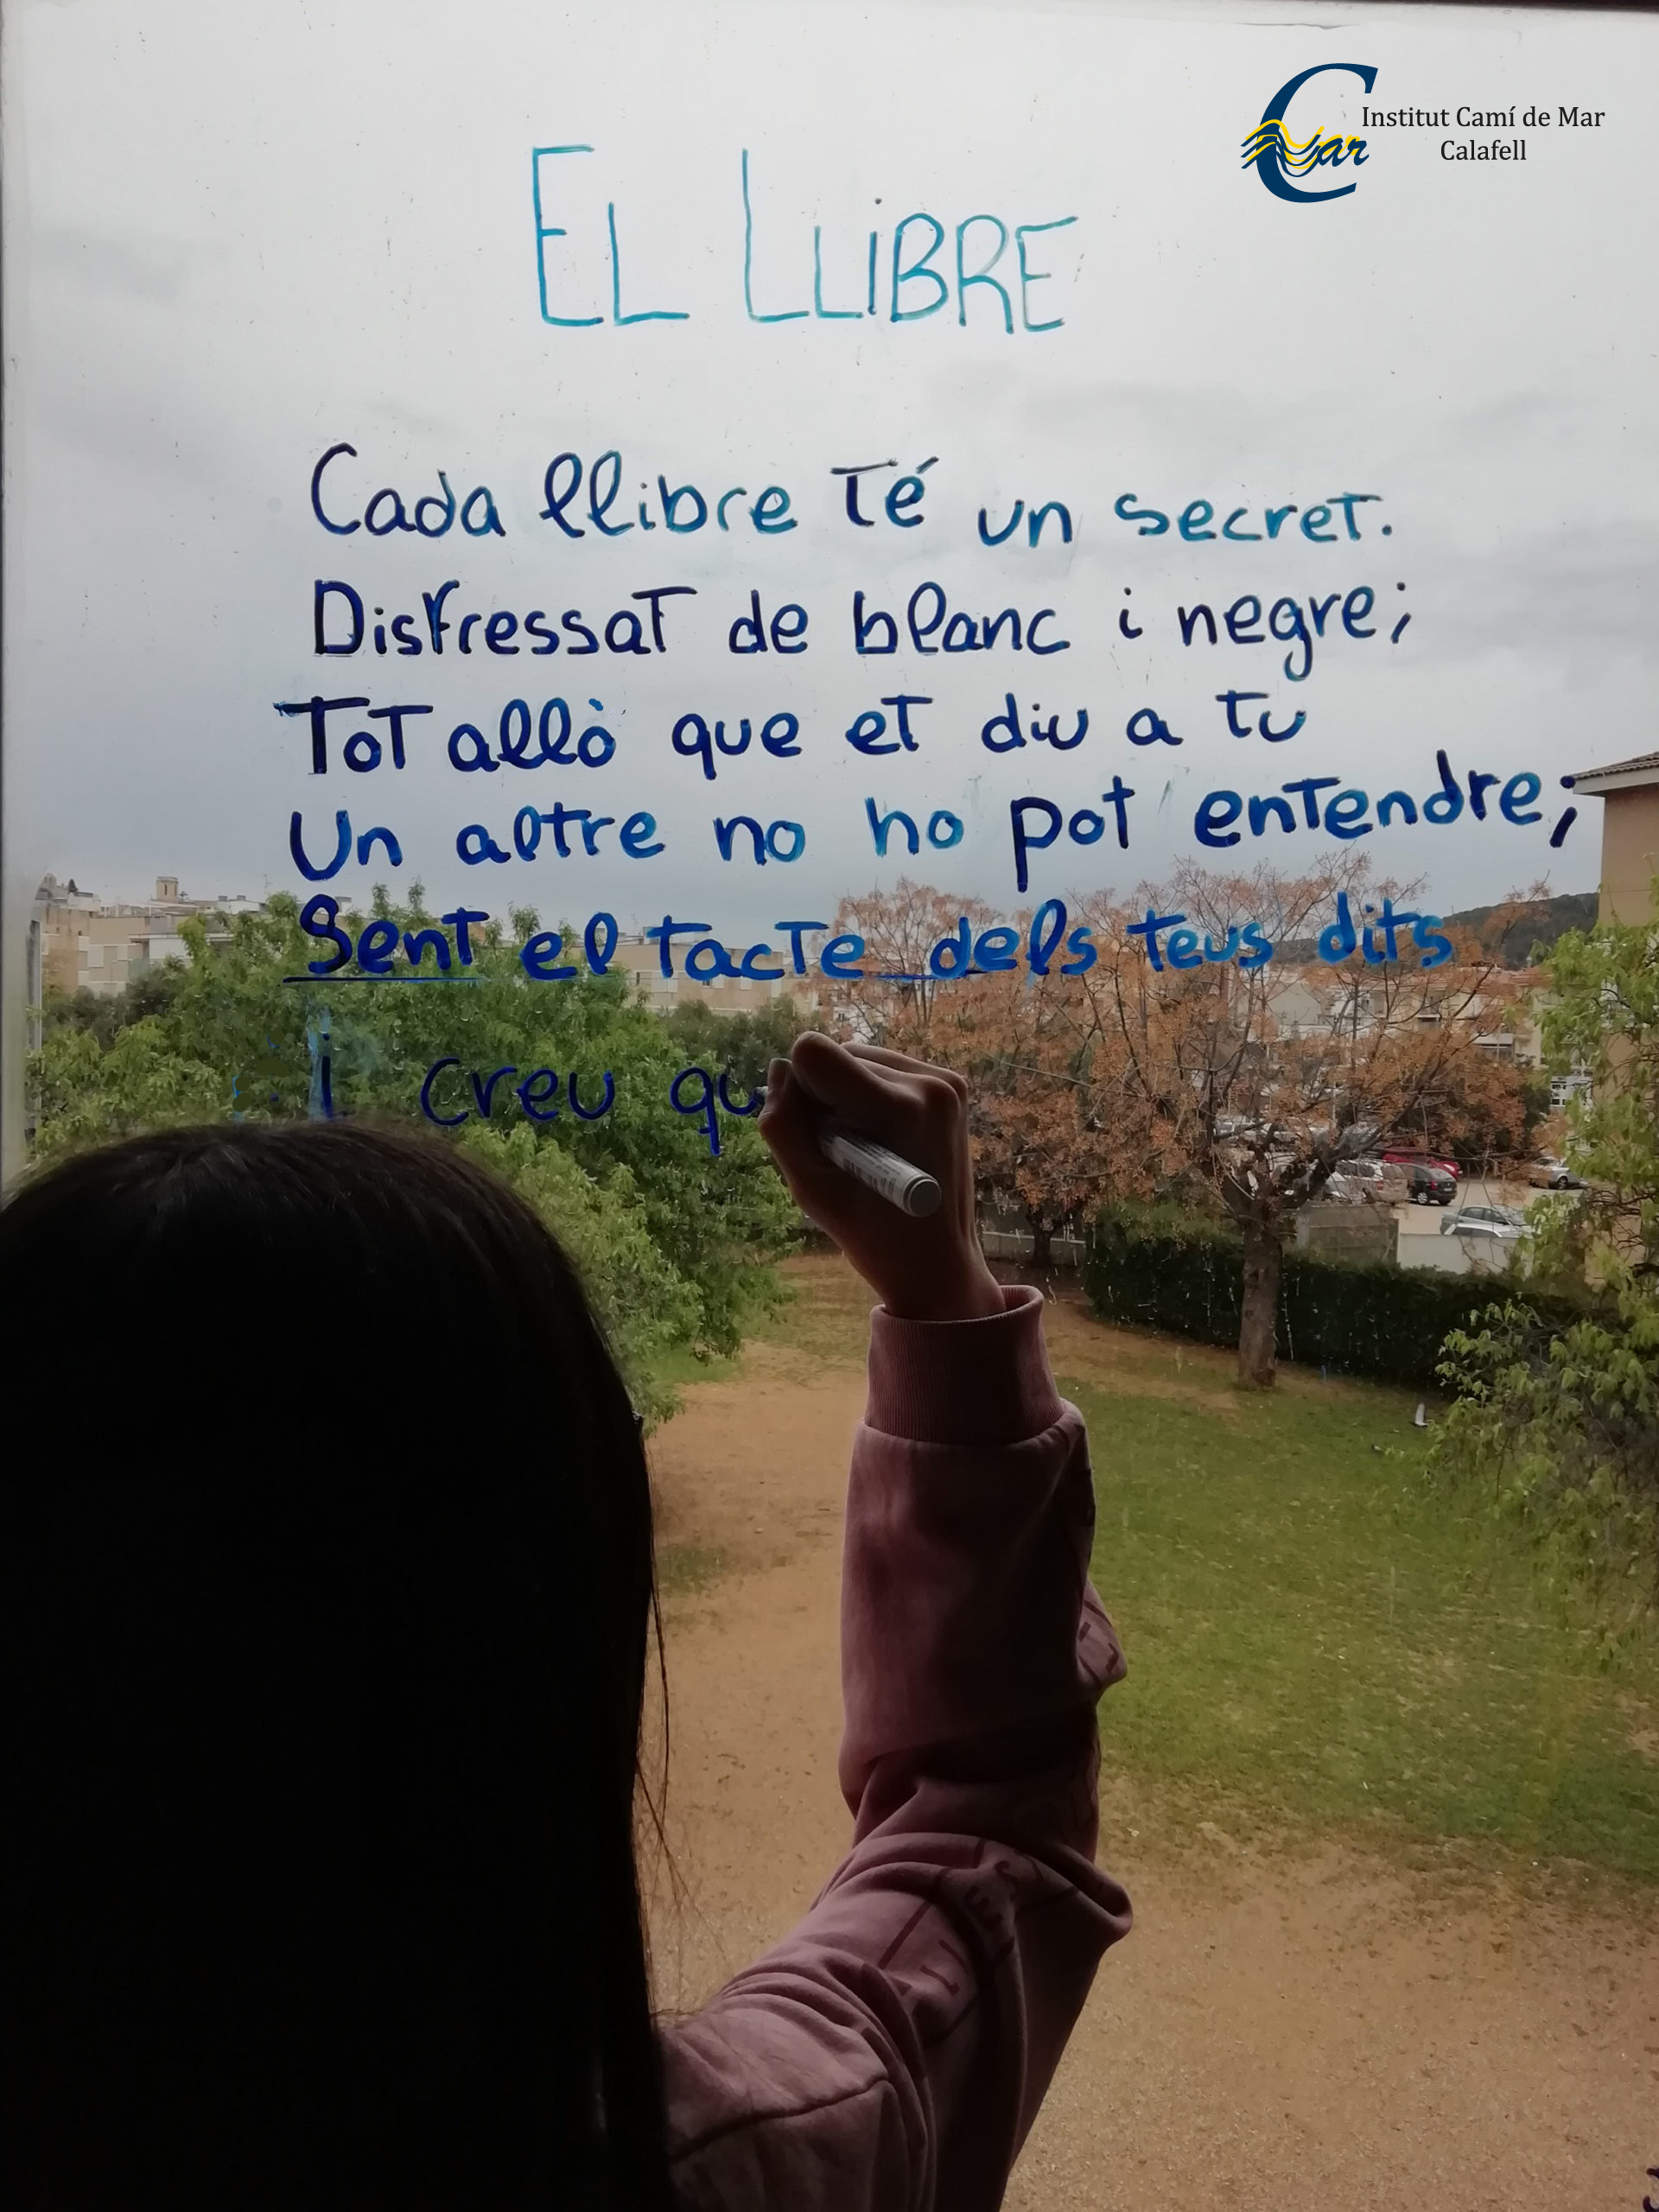 Institut Camí de Mar
Calafell
EL LLIBRE
Cada llibre té un secret.
Disfressat de blanc i negre;
Tot allò que et diu a tu
Un altre no ho pot entendre;
Sent el tacte dels teus dits
i creu qu